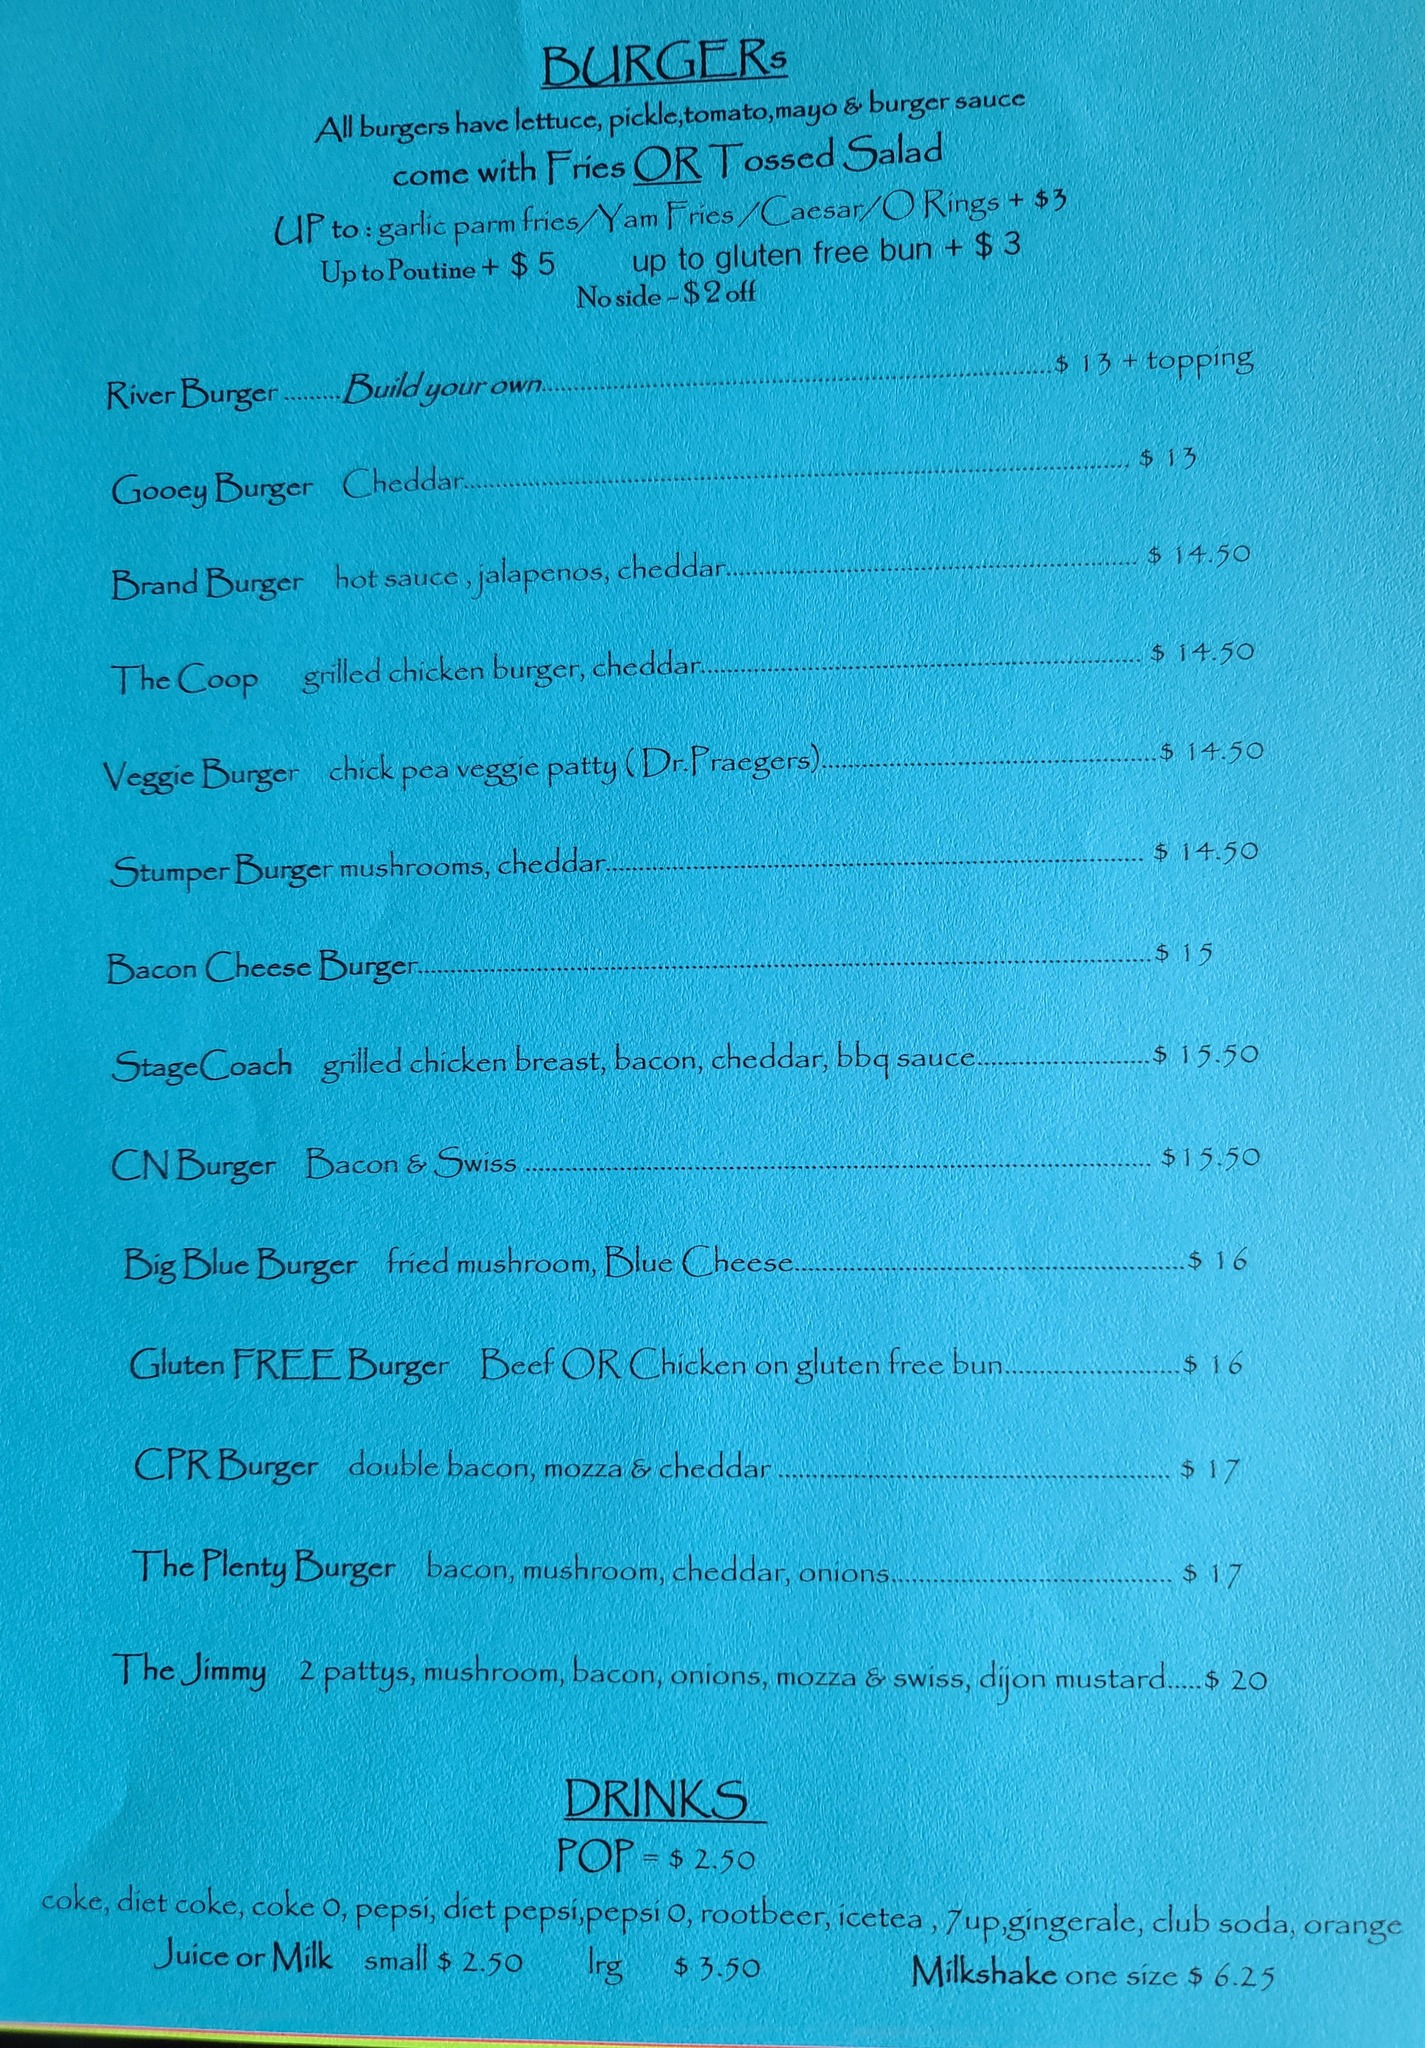 BURGERs
All burgers have lettuce, pickle,tomato,mayo & burger sauce
come with Fries OR Tossed Salad
UP to : garlic parm fries/Yam Fries/Caesar/O Rings + $3
Up to Poutine + $ 5 up to gluten free bun + $ 3
No side ~ $2 off
River Burger.........Build your own....................$ 13 + topping
Gooey Burger Cheddar.................... $ 13
Brand Burger hot sauce , jalapenos, cheddar.................... $ 14.50
The Coop grilled chicken burger, cheddar.................... $ 14.50
Veggie Burger chick pea veggie patty (Dr.Praegers)....................$ 14.50
Stumper Burger mushrooms, cheddar.................... $ 14.50
Bacon Cheese Burger....................$ 15
StageCoach grilled chicken breast, bacon, cheddar, bbq sauce....................$ 15.50
CN Burger Bacon & Swiss .................... $15.50
Big Blue Burger fried mushroom, Blue Cheese....................$ 16
Gluten FREE Burger Beef OR Chicken on gluten free bun....................$ 16
CPR Burger double bacon, mozza & cheddar .................... $ 17
The Plenty Burger bacon, mushroom, cheddar, onions.................... $ 17
The Jimmy 2 pattys, mushroom, bacon, onions, mozza & swiss, dijon mustard.....$ 20
DRINKS
POP = $ 2.50
coke, diet coke, coke 0, pepsi, diet pepsi,pepsi 0, rootbeer, icetea , 7up,gingerale, club soda, orange
Juice or Milk small $ 2.50 lrg $ 3.50 Milkshake one size $ 6.25